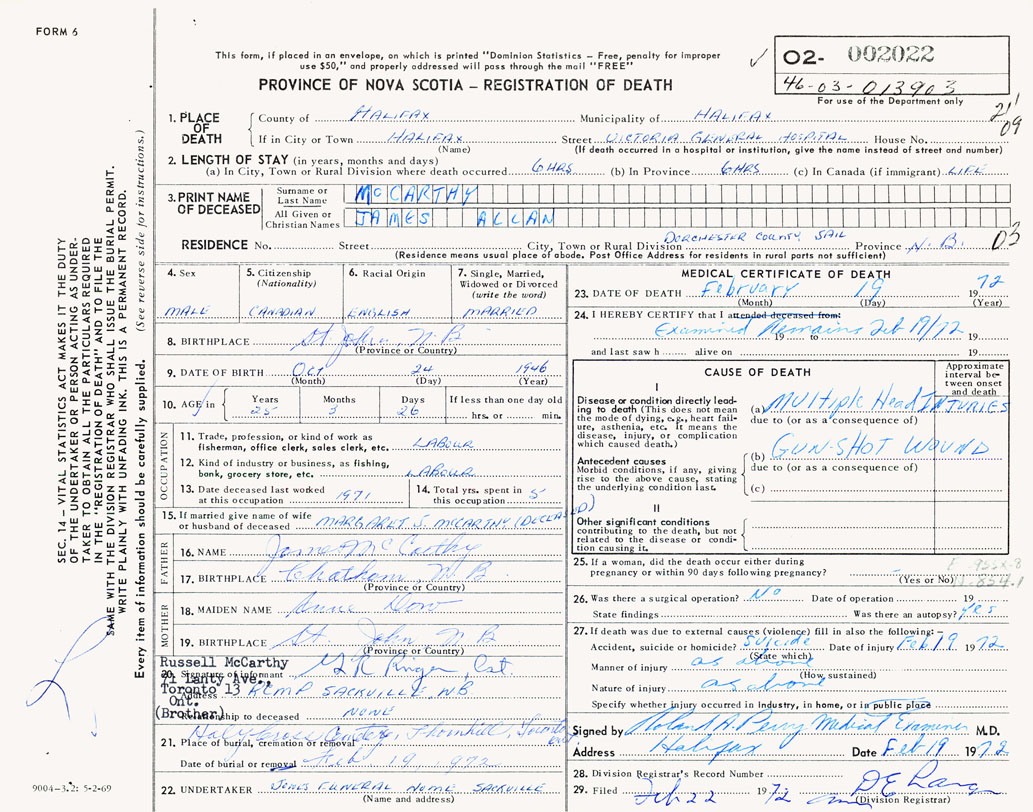 FORM 6
This form, if placed in an envelope, on which is printed "Dominion Statistics – Free, penalty for improper
use $50," and properly addressed will pass through the mail "FREE"
PROVINCE OF NOVA SCOTIA – REGISTRATION OF DEATH
02- 002022
46-03-013903
For use of the Department only
21'
09
1. PLACE OF DEATH
County of HALIFAX Municipality of HALIFAX
If in City or Town HALIFAX Street VICTORIA GENERAL HOSPITAL House No.
(Name) (If death occurred in a hospital or institution, give the name instead of street and number)
2. LENGTH OF STAY (in years, months and days)
(a) In City, Town or Rural Division where death occurred 6 HRS (b) In Province 6 HRS (c) In Canada (if immigrant) LIFE
3. PRINT NAME OF DECEASED
Surname or Last Name McCARTHY
All Given or Christian Names JAMES ALLAN
RESIDENCE No. Street City, Town or Rural Division DORCHESTER COUNTY JAIL Province N.B. 03
(Residence means usual place of abode. Post Office Address for residents in rural parts not sufficient)
4. Sex
MALE
5. Citizenship
(Nationality)
CANADIAN
6. Racial Origin
ENGLISH
7. Single, Married,
Widowed or Divorced
(write the word)
MARRIED
8. BIRTHPLACE St. John, N B
(Province or Country)
9. DATE OF BIRTH Oct 24 1946
(Month) (Day) (Year)
10. AGE in Years Months Days If less than one day old
25 3 26 hrs. or min.
OCCUPATION
11. Trade, profession, or kind of work as
fisherman, office clerk, sales clerk, etc. LABOUR
12. Kind of industry or business, as fishing,
bank, grocery store, etc. LABOUR
13. Date deceased last worked
at this occupation 1971
14. Total yrs. spent in
this occupation 5
15. If married give name of wife
or husband of deceased MARGARET S. McCARTHY (DECEASED)
FATHER
16. NAME James McCarthy
17. BIRTHPLACE Chatham, N B
(Province or Country)
MOTHER
18. MAIDEN NAME Anne
19. BIRTHPLACE St. John N B
(Province or Country)
Russell McCarthy
71 Lanty Ave.,
Toronto 13
Ont.
(Brother)
20. Signature of informant Cst.
Address RCMP SACKVILLE, NB
Relationship to deceased NONE
21. Place of burial, cremation or removal Holy Cross Cemetery, Thornhill, Toronto
Date of burial or removal Feb 19, 1972
22. UNDERTAKER JONES FUNERAL HOME SACKVILLE
(Name and address)
MEDICAL CERTIFICATE OF DEATH
23. DATE OF DEATH February 19 1972
(Month) (Day) (Year)
24. I HEREBY CERTIFY that I attended deceased from:
Examined Remains Feb 19/72
19 to 19
and last saw h alive on 19
CAUSE OF DEATH
Approximate
interval be-
tween onset
and death
I
Disease or condition directly lead-
ing to death (This does not mean
the mode of dying, e.g., heart fail-
ure, asthenia, etc. It means the
disease, injury, or complication
which caused death.)
(a) Multiple Head INJURIES
due to (or as a consequence of)
Antecedent causes
Morbid conditions, if any, giving
rise to the above cause, stating
the underlying condition last.
(b) GUN-SHOT WOUND
due to (or as a consequence of)
(c)
II
Other significant conditions
contributing to the death, but not
related to the disease or condi-
tion causing it.
25. If a woman, did the death occur either during
pregnancy or within 90 days following pregnancy?
(Yes or No)
26. Was there a surgical operation? No Date of operation 19
State findings Was there an autopsy? Yes
27. If death was due to external causes (violence) fill in also the following:
Accident, suicide or homicide? Suicide Date of injury Feb 19 1972
(State which)
Manner of injury as above
(How sustained)
Nature of injury as above
Specify whether injury occurred in industry, in home, or in public place
Signed by Roland A. Perry Medical Examiner M.D.
Address Halifax Date Feb 19 1972
28. Division Registrar's Record Number
29. Filed Feb 22 1972
(Division Registrar)
SEC. 14 – VITAL STATISTICS ACT MAKES IT THE DUTY
OF THE UNDERTAKER OR PERSON ACTING AS UNDER-
TAKER TO OBTAIN ALL THE PARTICULARS REQUIRED
IN THE "REGISTRATION OF DEATH" AND TO FILE THE
SAME WITH THE DIVISION REGISTRAR WHO SHALL ISSUE THE BURIAL PERMIT.
WRITE PLAINLY WITH UNFADING INK. THIS IS A PERMANENT RECORD.
Every item of information should be carefully supplied. (See reverse side for instructions.)
9004-3.2: 5-2-69